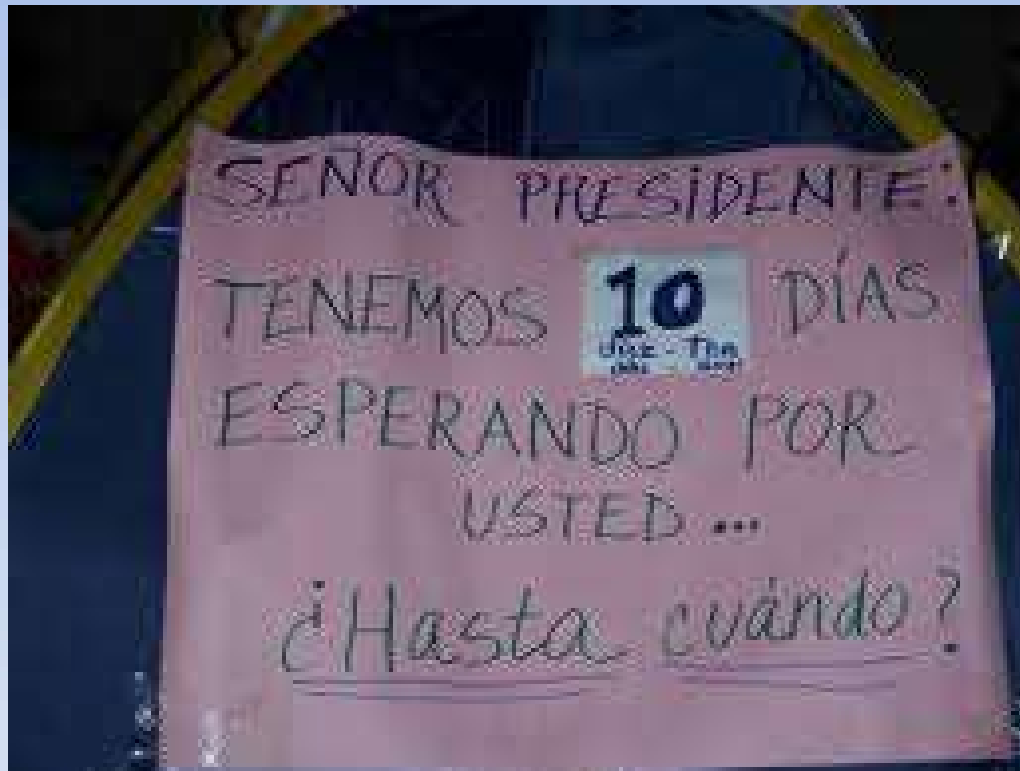 SEÑOR PRESIDENTE:
TENEMOS 10 DÍAS
ESPERANDO POR
USTED...
¿Hasta cuándo?